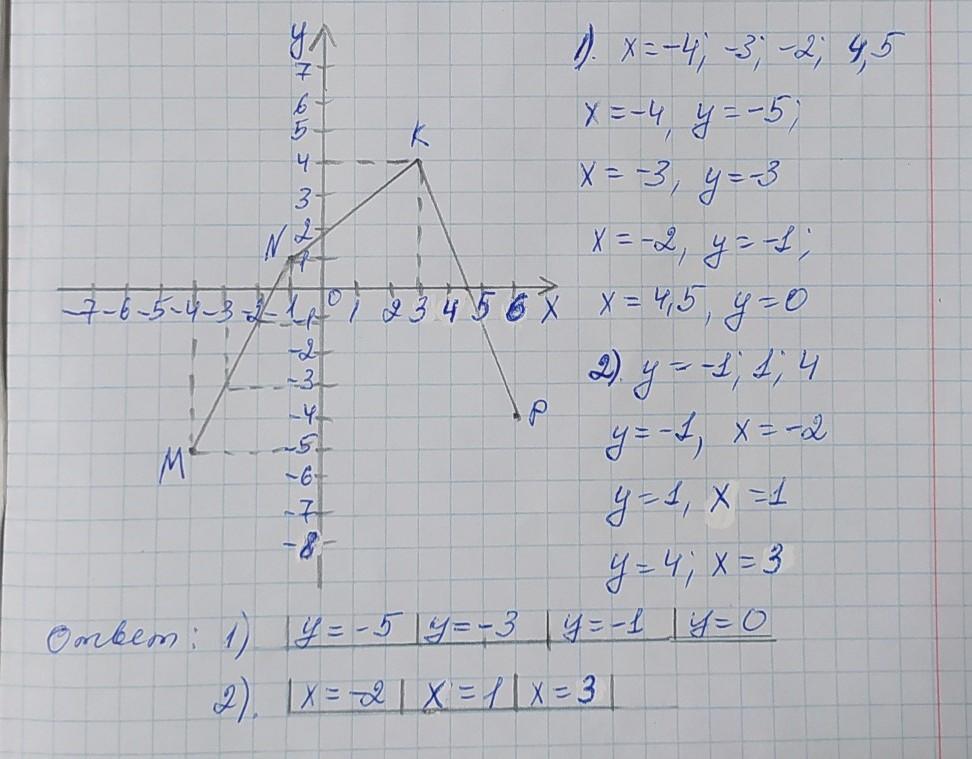 y
7
6
5
4
3
2
1
K
N
-7 -6 -5 -4 -3 -2 -1 0 1 2 3 4 5 6 X
-1
-2
-3
-4
-5
-6
-7
-8
M
P
1). x=-4; -3; -2; 4,5
x=-4, y=-5;
x=-3, y=-3
x=-2, y=-1;
x=4,5, y=0
2). y=-1; 1; 4
y=-1, x=-2
y=1, x=1
y=4; x=3
Ответ: 1) |y=-5|y=-3|y=-1|y=0
2). |x=-2|x=1|x=3|